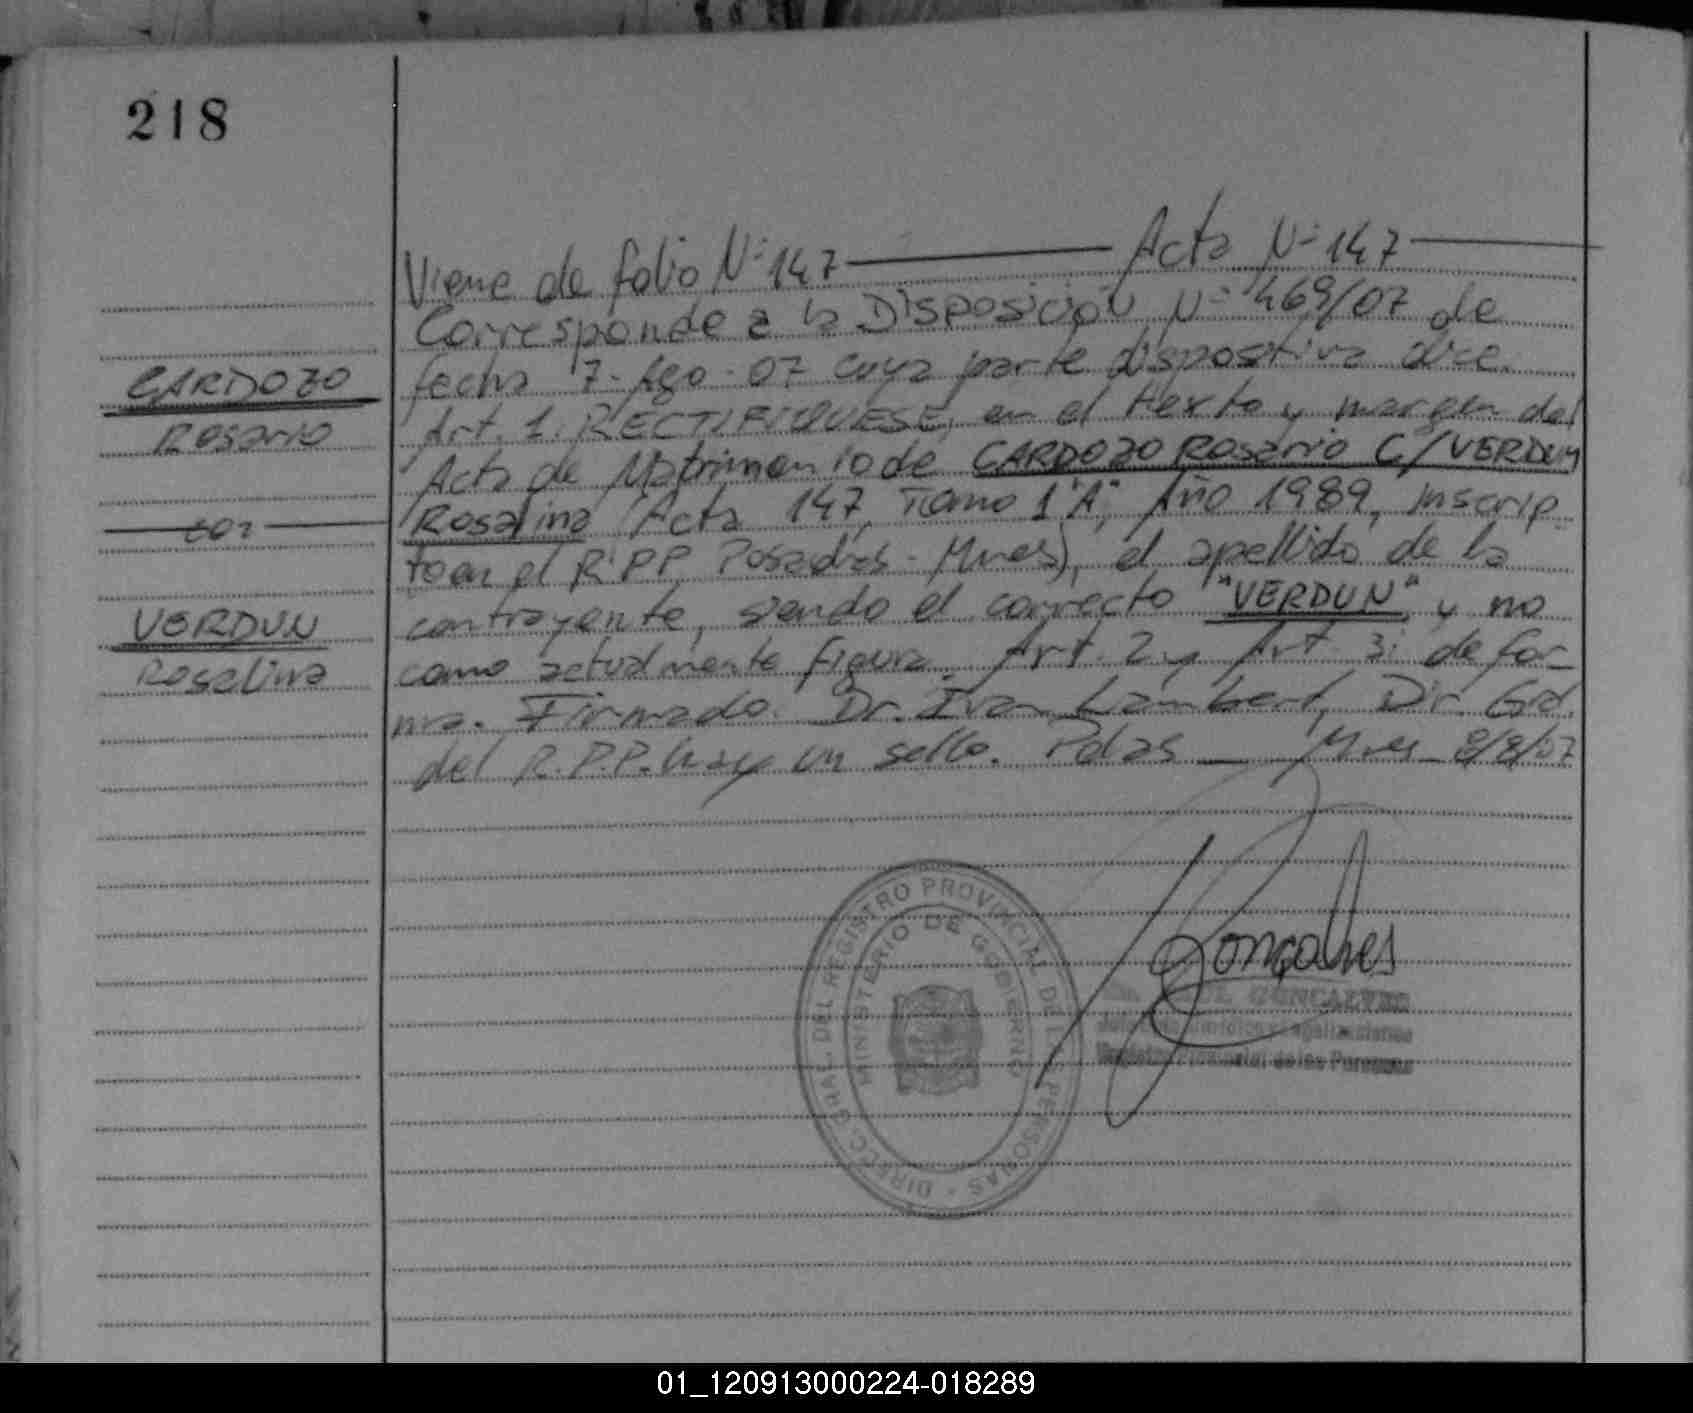 218
CARDOZO
Rosario
con
VERDUN
Rosalina
Viene de folio Nº 147 — Acta Nº 147 —
Corresponde a la Disposición Nº 469/07 de
fecha 7-Ago-07 cuya parte dispositiva dice.
Art. 1. RECTIFIQUESE, en el texto y margen del
Acta de Matrimonio de CARDOZO Rosario C/ VERDUN
Rosalina (Acta 147, Tomo 1"A", Año 1989, inscrip
to en el R.P.P. Posadas - Mnes), el apellido de la
contrayente, siendo el correcto "VERDUN" y no
como actualmente figura. Art. 2 y Art. 3: de for-
ma. Firmado. Dr. Ivan Lambert, Dir. Gral.
del R.P.P. hay un sello. Pdas — Mnes 8/8/07
DIREC. GRAL. DEL REGISTRO PROVINCIAL DE LAS PERSONAS
MINISTERIO DE GOBIERNO
Goncalves
GONCALVES
Legalizaciones
Registro Provincial de las Personas
01_120913000224-018289